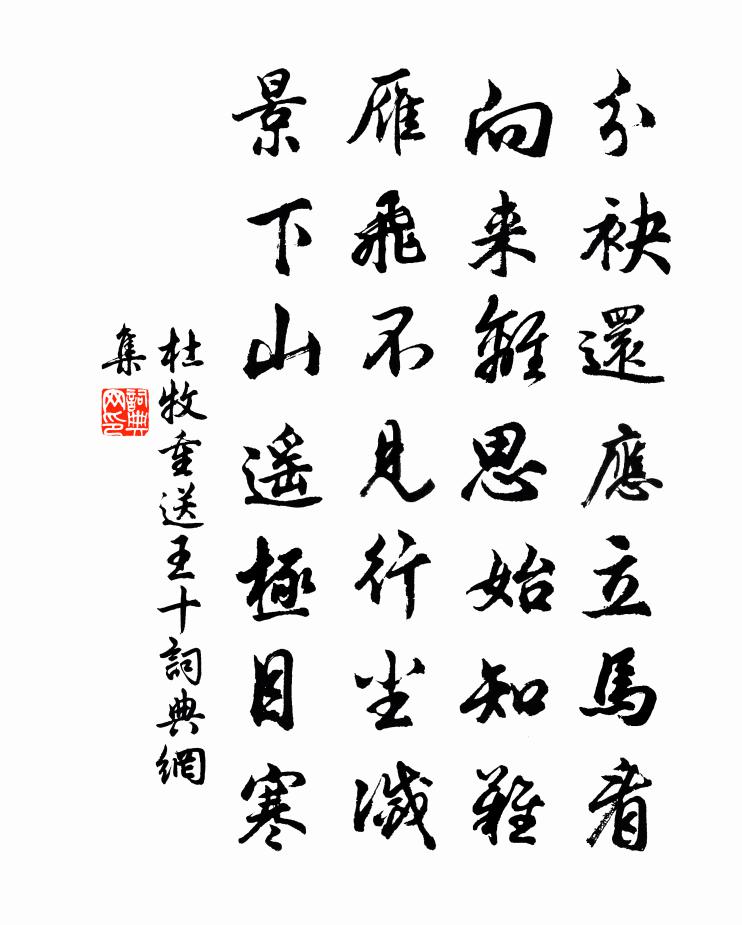 分袂還應立馬看
向来離思始知難
雁飛不見行尘滅
景下山遥極目寒
杜牧重送王十詞典網
集
詞典
网印